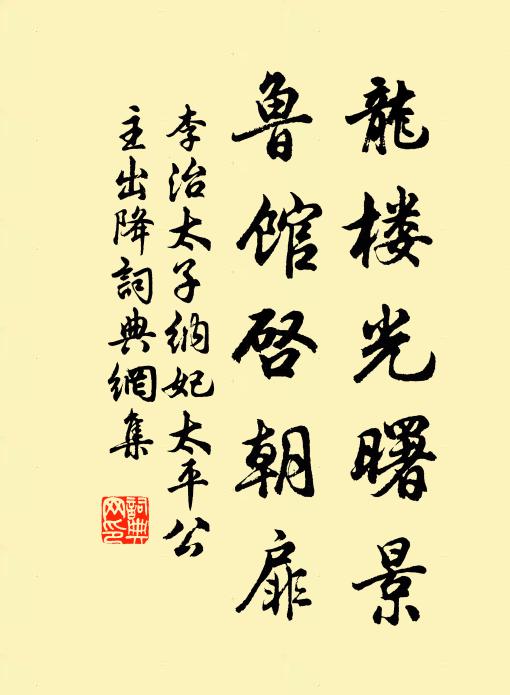 龍楼光曙景
魯館啓朝扉
李治太子納妃太平公
主出降詞典網集
詞典
网印